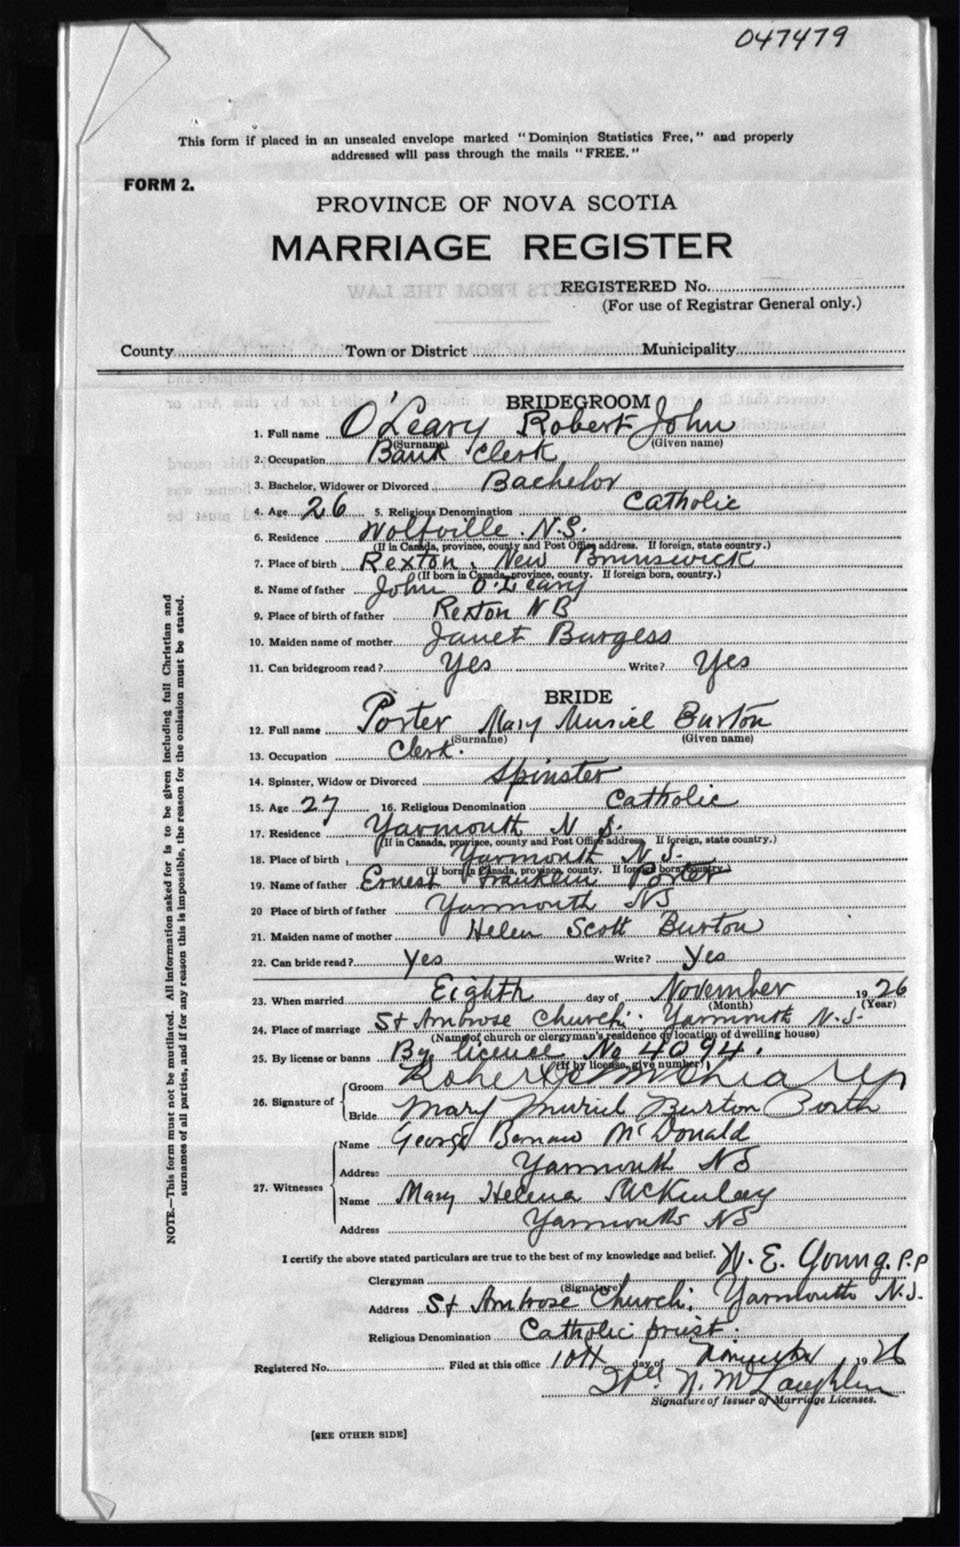 047479
This form if placed in an unsealed envelope marked "Dominion Statistics Free," and properly
addressed will pass through the mails "FREE."
FORM 2.
PROVINCE OF NOVA SCOTIA
MARRIAGE REGISTER
REGISTERED No.
(For use of Registrar General only.)
County Town or District Municipality
BRIDEGROOM
1. Full name O'Leary Robert John
(Surname) (Given name)
2. Occupation Bank Clerk
3. Bachelor, Widower or Divorced Bachelor
4. Age 26 5. Religious Denomination Catholic
6. Residence Wolfville N.S.
(If in Canada, province, county and Post Office address. If foreign, state country.)
7. Place of birth Rexton, New Brunswick
(If born in Canada, province, county. If foreign born, country.)
8. Name of father John O'Leary
9. Place of birth of father Rexton NB
10. Maiden name of mother Janet Burgess
11. Can bridegroom read? Yes Write? Yes
BRIDE
12. Full name Porter Mary Muriel Burton
(Surname) (Given name)
13. Occupation Clerk.
14. Spinster, Widow or Divorced Spinster
15. Age 27 16. Religious Denomination Catholic
17. Residence Yarmouth N S.
(If in Canada, province, county and Post Office address, If foreign, state country.)
18. Place of birth Yarmouth N S.
(If born in Canada, province, county. If foreign born, country.)
19. Name of father Ernest Franklin Porter
20 Place of birth of father Yarmouth NS
21. Maiden name of mother Helen Scott Burton
22. Can bride read? Yes Write? Yes
23. When married Eighth day of November 1926
(Month) (Year)
24. Place of marriage St Ambrose Church. Yarmouth N.S.
(Name of church or clergyman's residence or location of dwelling house)
25. By license or banns By licence No 4094.
(If by license, give number)
26. Signature of Groom
Bride Mary Muriel Burton Porter
27. Witnesses Name George McDonald
Address Yarmouth NS
Name Mary Helena McKinlay
Address Yarmouth NS
I certify the above stated particulars are true to the best of my knowledge and belief. W. E. Young. P.P
Clergyman
(Signature)
Address St Ambrose Church, Yarmouth N.S.
Religious Denomination Catholic priest.
Registered No. Filed at this office 10th day of November 1926
N. McLaughlin
Signature of Issuer of Marriage Licenses.
[SEE OTHER SIDE]
NOTE.—This form must not be mutilated. All information asked for is to be given including full Christian and
surnames of all parties, and if for any reason this is impossible, the reason for the omission must be stated.